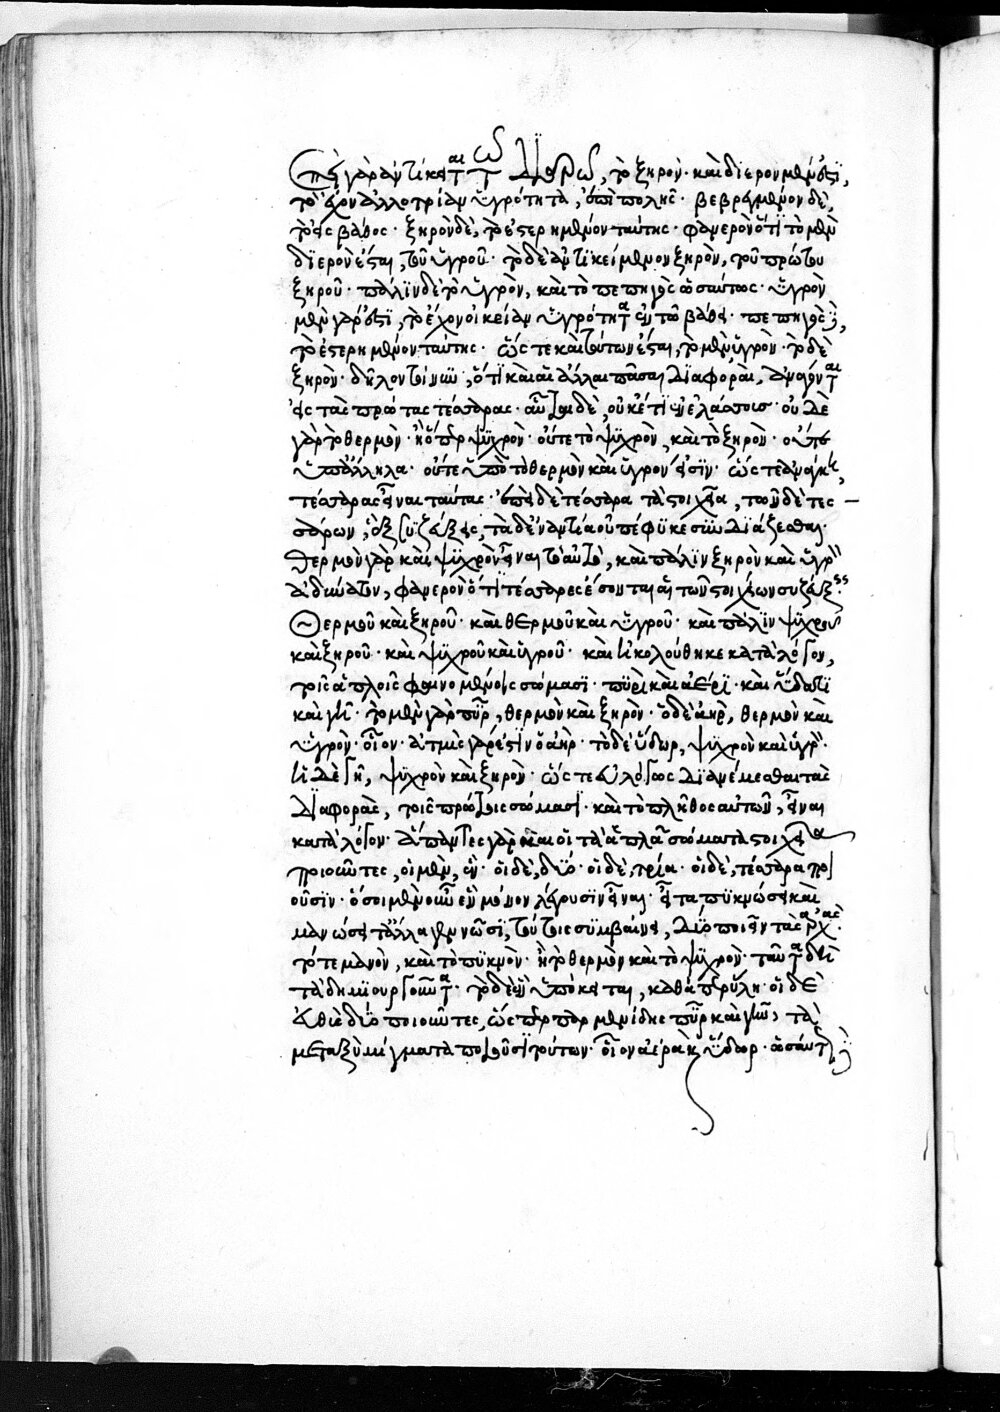 ἐπεὶ γὰρ ἀντίκειται τῶ διερῶ, τὸ ξηρὸν· καὶ διερὸν μέν ἐστι,
τὸ ἔχον ἀλλοτρίαν ὑγρότητα, ἐπιπολῆς· βεβρεγμένον δὲ,
τὸ εἰς βάθος· ξηρὸν δὲ, τὸ ἐστερημένον ταύτης· φανερὸν ὅτι τὸ μὲν
διερὸν ἔσται, τοῦ ὑγροῦ· τὸ δὲ ἀντικείμενον ξηρὸν, τοῦ πρώτου
ξηροῦ· πάλιν δὲ τὸ ὑγρὸν, καὶ τὸ πεπηγὸς ὡσαύτως· ὑγρὸν
μὲν γάρ ἐστι, τὸ ἔχον οἰκείαν ὑγρότητα ἐν τῶ βάθει· πεπηγὸς δὲ,
τὸ ἐστερημένον ταύτης· ὥστε καὶ τούτων ἔσται, τὸ μὲν ὑγρὸν· τὸ δὲ
ξηρὸν· δῆλον τοίνυν, ὅτι καὶ αἱ ἄλλαι πᾶσαι διαφοραὶ, ἀνάγονται
εἰς τὰς πρώτας τέσσαρας· αὗται δὲ, οὐκέτι εἰς ἐλάττους· οὐδὲ
γὰρ τὸ θερμὸν· ἢ ὅπερ ψυχρὸν· οὔτε τὸ ψυχρὸν, καὶ τὸ ξηρὸν· οὔτε
ὑπάλληλα· οὔτε ὑπὸ τὸ θερμὸν καὶ ὑγρὸν εἰσὶν· ὥστε ἀνάγκη,
τέσσαρας εἶναι ταύτας· ἐπεὶ δὲ τέσσαρα τὰ στοιχεῖα, τῶν δὲ τεσ-
σάρων, ἓξ συζεύξεις, τὰ δ' ἐναντία οὐ πέφυκε συνδυάζεσθαι·
θερμὸν γὰρ καὶ ψυχρὸν εἶναι τὸ αὐτὸ, καὶ πάλιν ξηρὸν καὶ ὑγρὸν
ἀδύνατον, φανερὸν ὅτι τέσσαρες ἔσονται αἱ τῶν στοιχείων συζεύξεις·
Θερμοῦ καὶ ξηροῦ· καὶ θερμοῦ καὶ ὑγροῦ· καὶ πάλιν ψυχροῦ
καὶ ξηροῦ· καὶ ψυχροῦ καὶ ὑγροῦ· καὶ ἠκολούθηκε κατὰ λόγον,
τοῖς ἁπλοῖς φαινομένοις σώμασι· πυρὶ καὶ ἀέρι· καὶ ὕδατι
καὶ γῆ· τὸ μὲν γὰρ πῦρ, θερμὸν καὶ ξηρὸν· ὁ δὲ ἀὴρ, θερμὸν καὶ
ὑγρὸν· οἷον ἀτμὶς γάρ ἐστιν ὁ ἀὴρ· τὸ δὲ ὕδωρ, ψυχρὸν καὶ ὑγρὸν·
ἡ δὲ γῆ, ψυχρὸν καὶ ξηρὸν· ὥστε εὐλόγως διανέμεσθαι τὰς
διαφορὰς, τοῖς πρώτοις σώμασι· καὶ τὸ πλῆθος αὐτῶν, εἶναι
κατὰ λόγον· ἅπαντες γὰρ καὶ οἱ τὰ ἁπλᾶ σώματα στοιχεῖα
ποιοῦντες, οἱ μὲν, ἓν· οἱ δὲ, δύο· οἱ δὲ, τρία· οἱ δὲ, τέσσαρα ποι
οῦσιν· ὅσοι μὲν οὖν ἓν μόνον λέγουσιν εἶναι· εἶτα πυκνώσει καὶ
μανώσει τἄλλα γεννῶσι, τούτοις συμβαίνει, δύο ποιεῖν τὰς ἀρχὰς·
τό τε μανὸν, καὶ τὸ πυκνὸν· ἢ τὸ θερμὸν καὶ τὸ ψυχρὸν· ταῦτα δ' ἐστὶ
τὰ δημιουργοῦντα· τὸ δὲ ἓν ὑπόκειται, καθάπερ ὕλη· οἱ δὲ
εὐθὺς δύο ποιοῦντες, ὥσπερ παρμενίδης πῦρ καὶ γῆν, τὰ
μεταξὺ μίγματα ποιοῦσι τούτων· οἷον ἀέρα κ ὕδωρ· ὡσαύτως δὲ